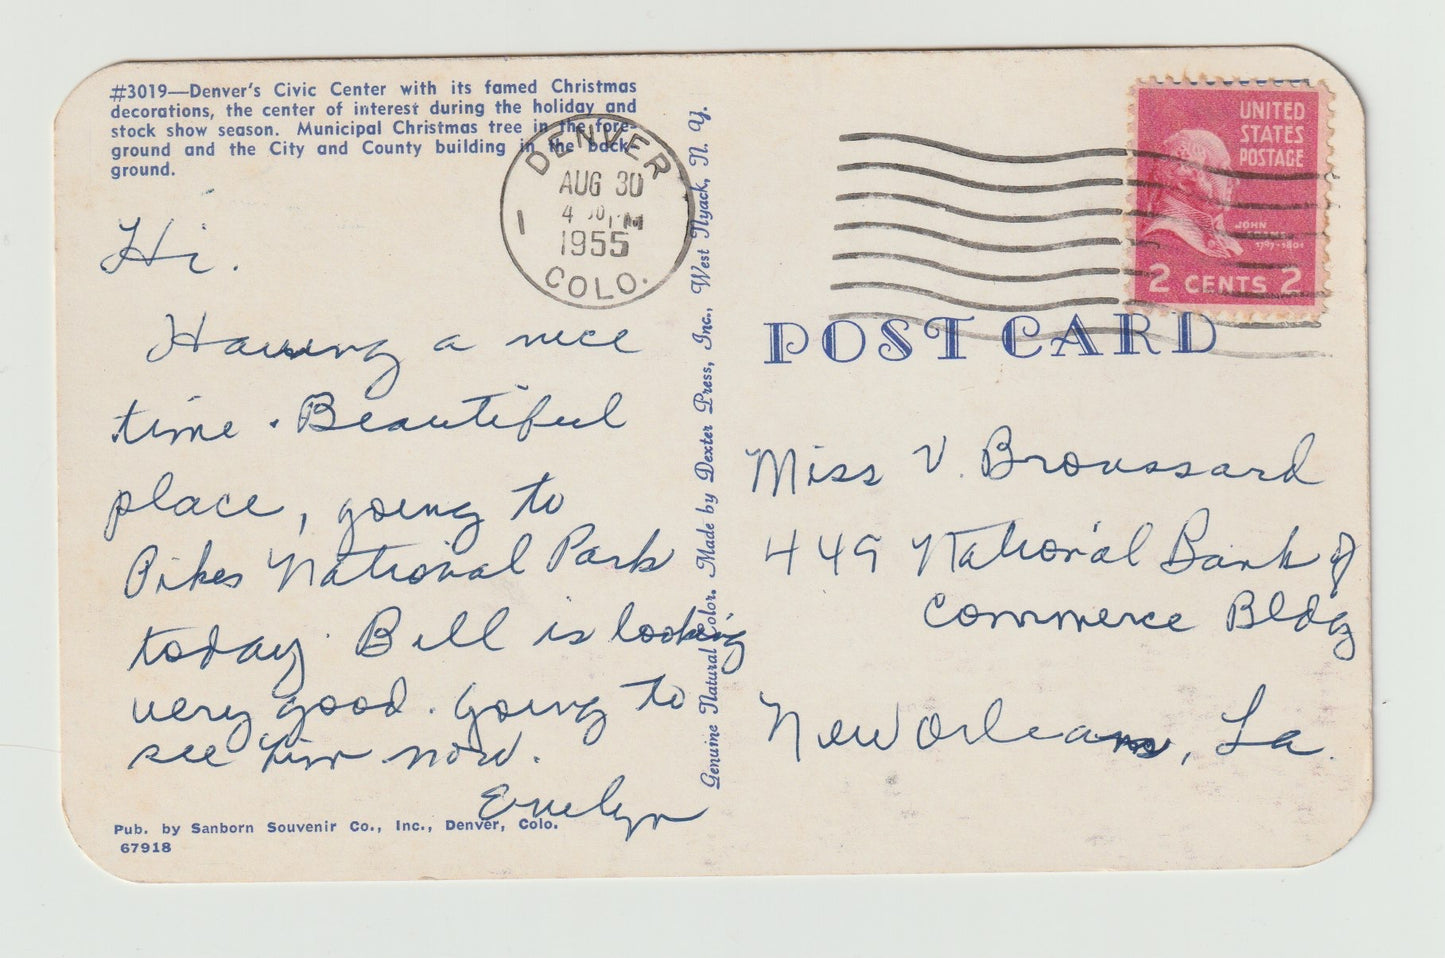 #3019—Denver's Civic Center with its famed Christmas
decorations, the center of interest during the holiday and
stock show season. Municipal Christmas tree in the fore-
ground and the City and County building in the back-
ground.
DENVER
AUG 30
4 30 PM
1955
1
COLO.
UNITED
STATES
POSTAGE
JOHN
ADAMS
1797-1801
2 CENTS 2
POST CARD
Hi.
Having a nice
time. Beautiful
place, going to
Pikes National Park
today. Bill is looking
very good. Going to
see him now.
Evelyn
Genuine Natural Color. Made by Dexter Press, Inc., West Nyack, N. Y.
Miss V. Broussard
449 National Bank of
Commerce Bldg
New Orleans, La.
Pub. by Sanborn Souvenir Co., Inc., Denver, Colo.
67918